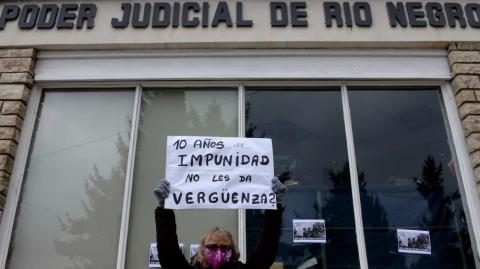 PODER JUDICIAL DE RIO NEGRO
10 AÑOS de
IMPUNIDAD
NO LES DA
VERGÜENZA?